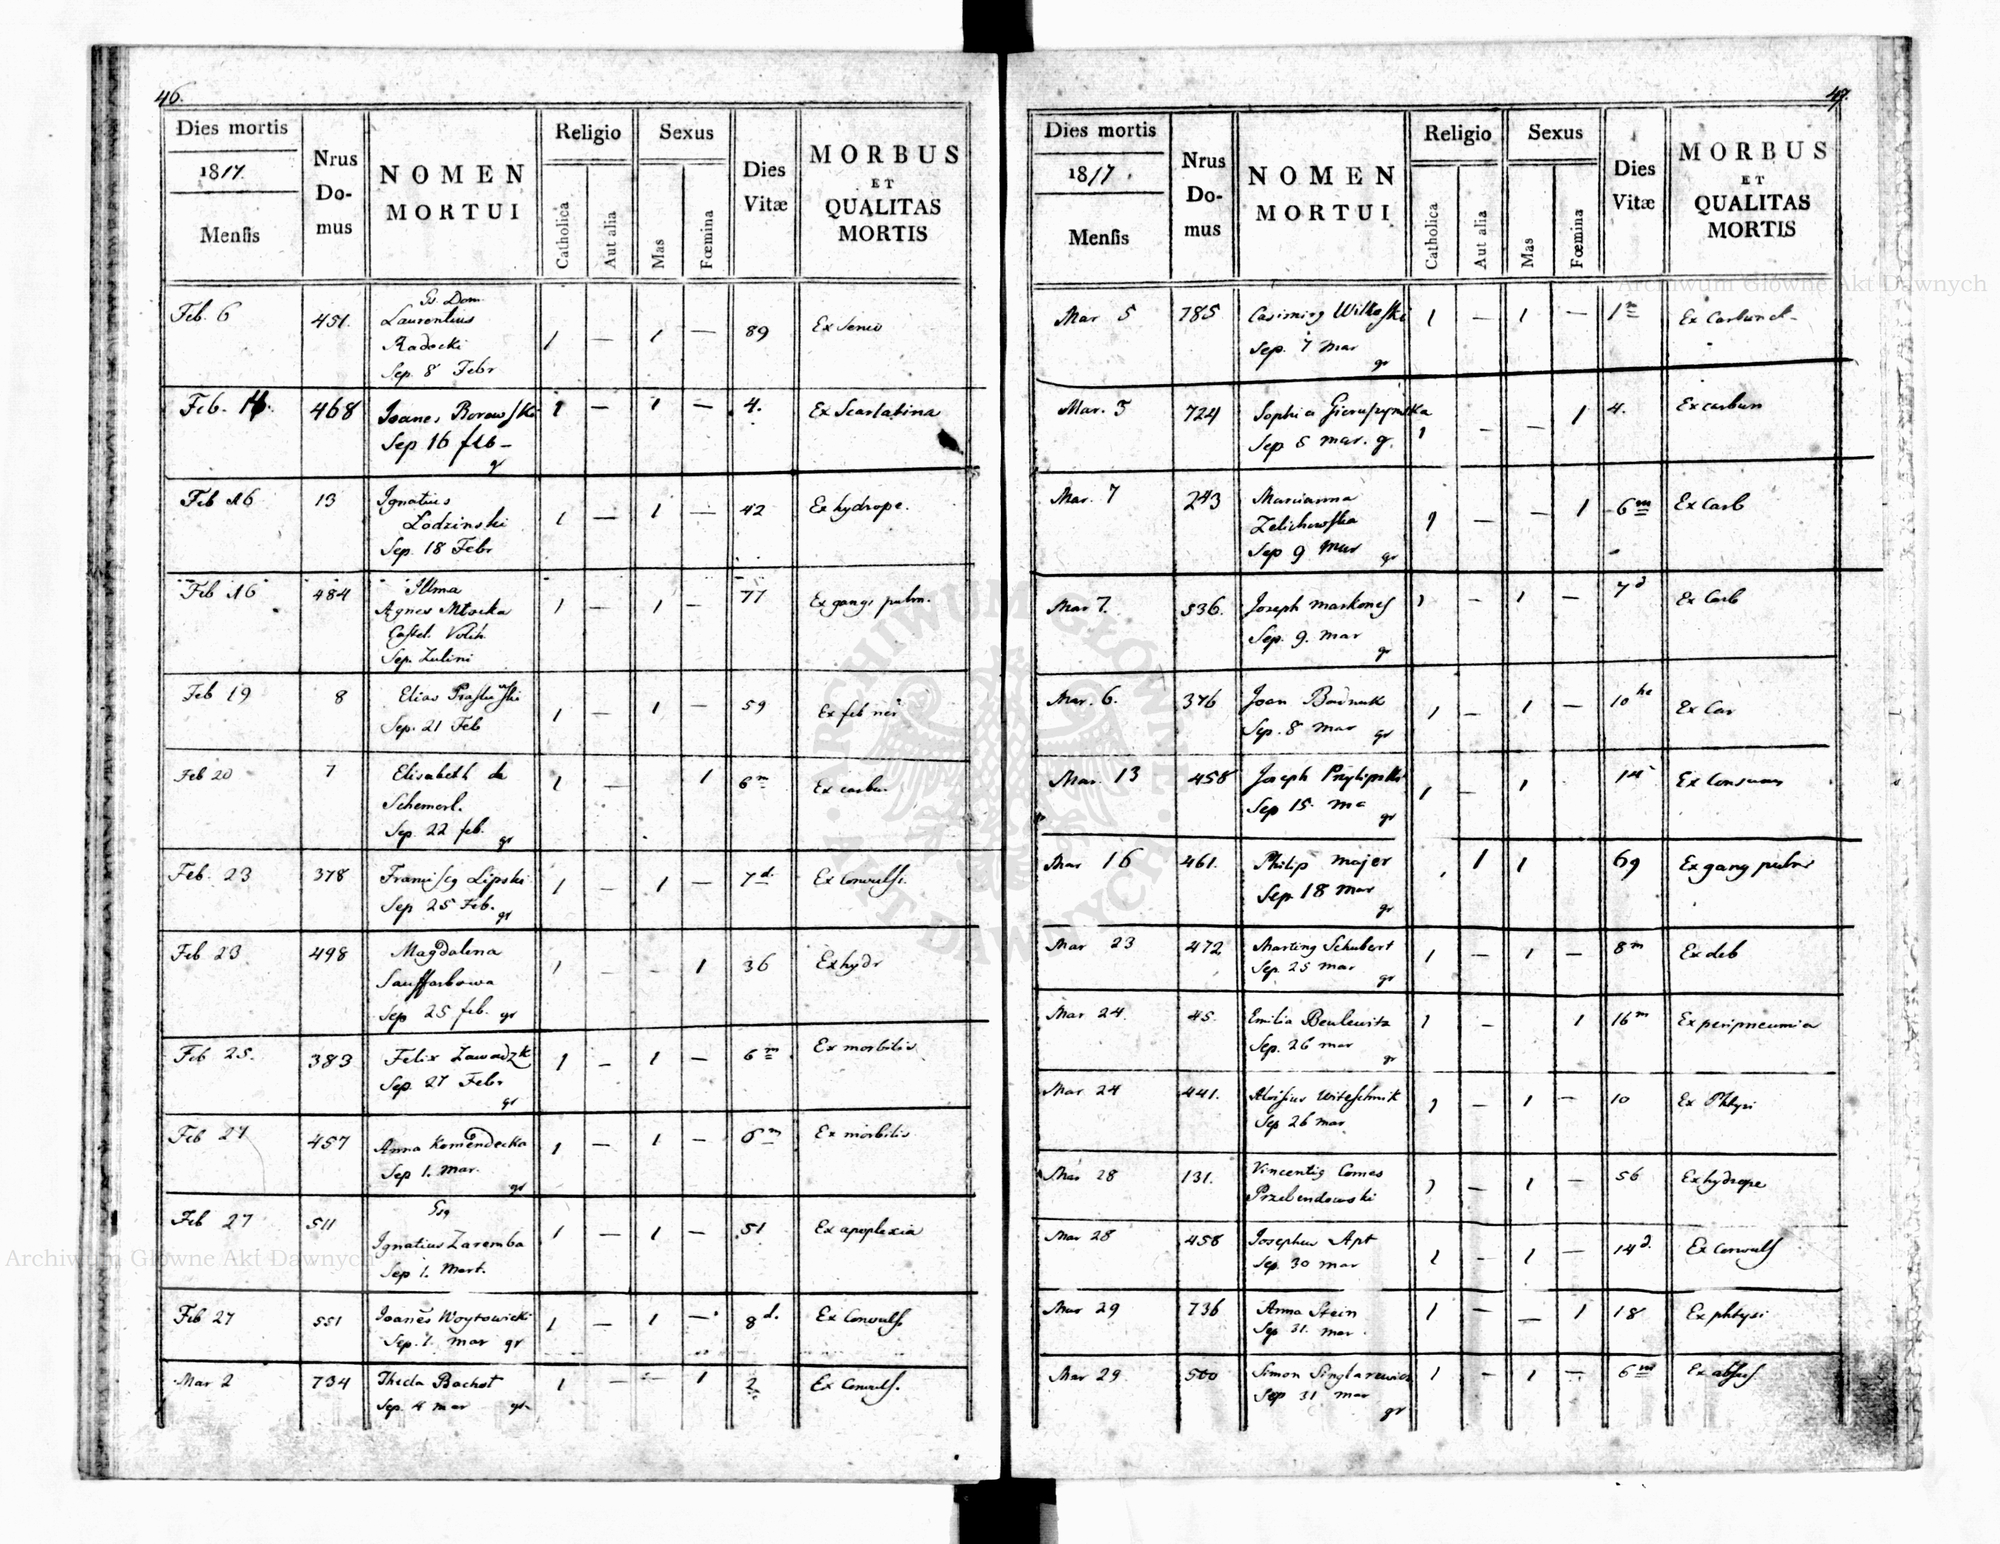 46.
Dies mortis
1817.
Mensis
Nrus
Do-
mus
NOMEN
MORTUI
Religio
Catholica
Aut alia
Sexus
Mas
Fœmina
Dies
Vitæ
MORBUS
ET
QUALITAS
MORTIS
Feb. 6 451. Laurentius 1 — 1 — 89 Ex Senio
Radocki
Sep. 8 Febr
Feb. 14. 468 Joanes Borowski 1 — 1 — 4. Ex Scarlatina
Sep 16 feb –
gr
Feb 16 13 Ignatius 1 — 1 — 42 Ex hydrope.
Łodzinski
Sep. 18 Febr
Feb 16 484 Illma 1 — 1 — 77 Ex gangr pulm.
Agnes Młocka
Castel. Volih.
Sep. Lulini
Feb 19 8 Elias 1 — 1 — 59 Ex feb
Sep. 21 Feb
Feb 20 7 Elisabeth de 1 — 1 6m Ex carbu.
Schemerl.
Sep. 22 feb. gr
Feb. 23 378 Francisc9 Lipski 1 — 1 — 7d. Ex Convuls.
Sep 25 Feb. gr
Feb 23 498 Magdalena 1 - - 1 36 Ex hydr
Sep 25 feb. gr
Feb 25. 383 Felix Zawadzk 1 — 1 — 6m Ex morbilis
Sep. 27 Febr
gr
Feb 27 457 Anna Komendecka 1 — 1 — 6m Ex morbilis
Sep 1. Mar.
gr
Feb 27 511 Ignatius Zaremba 1 — 1 — 51 Ex apoplexia
Sep 1. Mart.
Feb 27 551 Joanes Woytowicki 1 — 1 — 8d. Ex Convuls
Sep. 1. mar gr
Mar 2 734 Thecla Bachot 1 — — 1 2 Ex Convuls.
Sep. 4 mar gr
47.
Dies mortis
1817.
Mensis
Nrus
Do-
mus
NOMEN
MORTUI
Religio
Catholica
Aut alia
Sexus
Mas
Fœmina
Dies
Vitæ
MORBUS
ET
QUALITAS
MORTIS
Mar 5 785 Casimir9 Wilkoski 1 — 1 — 1m Ex Carbunct–
Sep. 7 Mar
gr
Mar. 3 724 Sophia 1 — — 1 4. Ex carbun
Sep 5 mar. gr
Mar. 7 243 Marianna 1 — — 1 6m Ex Carb
Zelichowska
Sep 9 Mar gr
Mar 7. 536. Joseph Markones 1 — 1 — 7d Ex Carb
Sep. 9. mar
gr
Mar. 6. 376 Joan Bodnak 1 — 1 — 10 ho Ex Car
Sep. 8 mar gr
Mar. 13 458 Joseph Przylipski 1 1 14 Ex Consum
Sep 15. Ma
gr
Mar 16 461. Philip Majer 1 1 69 Ex gang pulm
Sep. 18 mar
gr
Mar 23 472 Martin9 Schubert 1 — 1 — 8m Ex deb
Sep. 25 mar
gr
Mar 24. 45. Emilia Beulewitz 1 — 1 16m Ex peripneumia
Sep. 26 mar
gr
Mar 24 441. Aloisius Witeschnik 1 — 1 — 10 Ex Phtysi
Sep 26 mar
Mar 28 131. Vincenti9 Comes 1 — 1 — 56 Ex hydrope
Przebendowski
Mar 28 458 Josephus Apt 1 — 1 — 14d. Ex Convuls
Sep. 30 mar
Mar 29 736 Anna Stein 1 — — 1 18 Ex phtysi
Sep 31. mar.
Mar 29. 500 Simon Singlarewicz 1 — 1 — 6m Ex absces
Sep 31 mar
gr
Archiwum Główne Akt Dawnych
Archiwum Główne Akt Dawnych
ARCHIWUM GŁÓWNE
AKT DAWNYCH